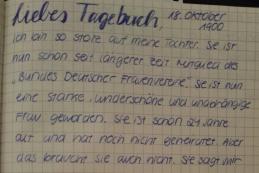 Liebes Tagebuch, 18. Oktober 1900
Ich bin so stolz auf meine Tochter. Sie ist
nun schon seit längerer Zeit Mitglied des
„Bundes Deutscher Frauenvereine“. Sie ist nun
eine starke, wunderschöne und unabhängige
Frau geworden. Sie ist schon 21 Jahre
alt und hat noch nicht geheiratet. Aber
das braucht sie auch nicht. Sie sagt mir